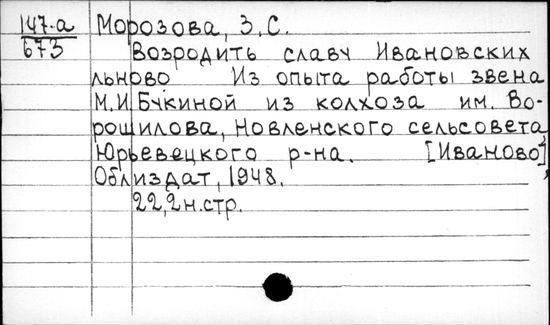 147-а
673
Морозова, З.С.
Возродить славу Ивановских
льново Из опыта работы звена
М.И.Букиной из колхоза им. Во-
рошилова, Новленского сельсовета,
Юрьевецкого р-на. [Иваново],
Облиздат, 1948.
22,2н.стр.